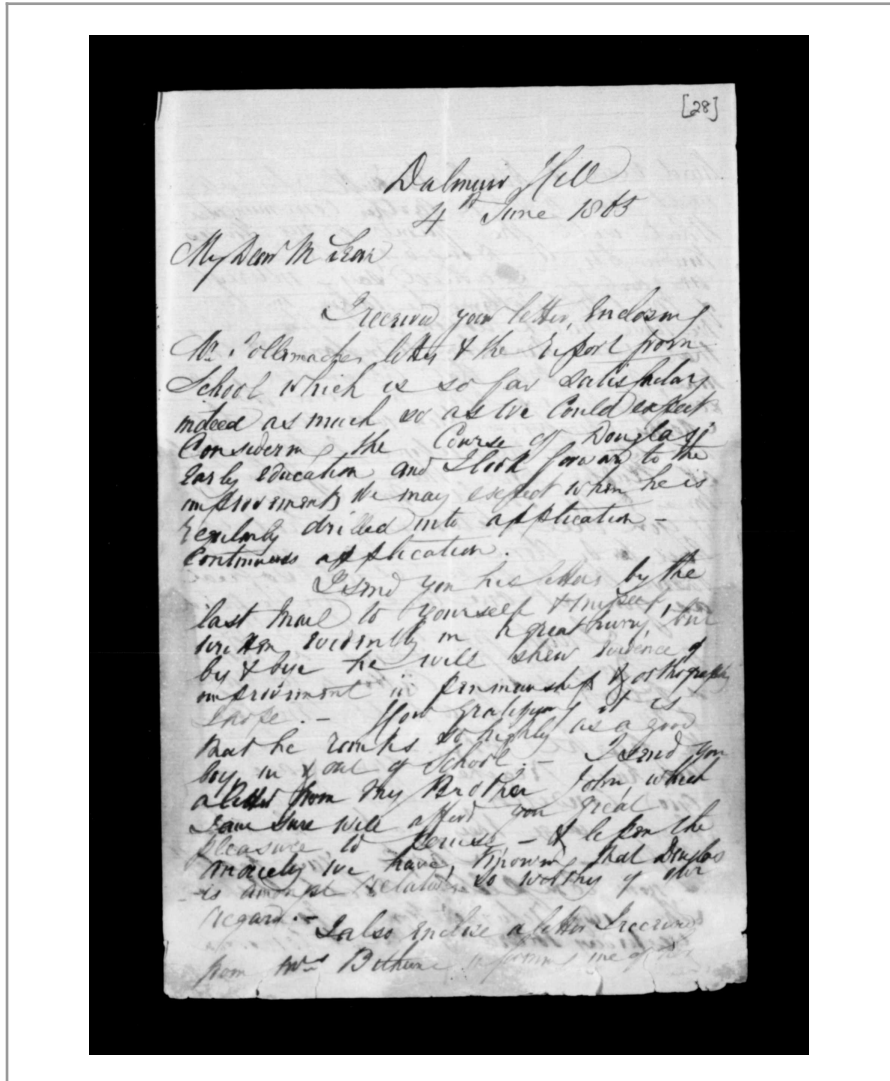 [28]
Dalmuir Hill
4th June 1865
My Dear McLean
I received your letter, enclosing
Mr. Tollemaches letter & the report from
School which is so far satisfactory
indeed as much so as we could expect
Considering the Course of Douglas'
Early education and I look forward to the
improvements we may expect when he is
regularly drilled into application –
Continuous application.
I send you his letters by the
last mail to yourself & myself,
written evidently in a great hurry, but
by & bye he will shew evidence of
improvement in penmanship & orthography
I hope. – How gratifying it is
that he ranks so highly as a good
boy in & out of School. – I send you
a letter from my Brother John, which
I am sure will afford you great
pleasure to peruse – & lessen the
anxiety we have, knowing that Douglas
is amongst relatives so worthy of our
regard. –
I also enclose a letter I received
from Mrs Bethune informing me of her